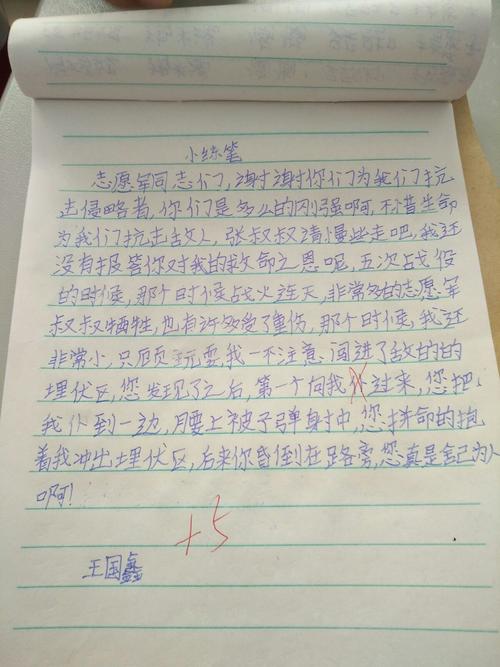 小练笔
志愿军同志们,谢谢你们为我们抗
击侵略者,你们是多么的刚强啊,不惜生命
为我们抗击敌人,张叔叔请慢些走吧,我还
没有报答你对我的救命之恩呢,五次战役
的时候,那个时候战火连天,非常多的志愿军
叔叔牺牲,也有许多受了重伤,那个时候,我还
非常小,只顾玩耍,我一不注意,闯进了敌的的
埋伏区,您发现了之后,第一个向我扑过来,您把
我仆到一边,腰上被子弹射中,您拼命的抱
着我冲出埋伏区,后来你昏倒在路旁,您真是舍己为人
啊!
+5
王国鑫